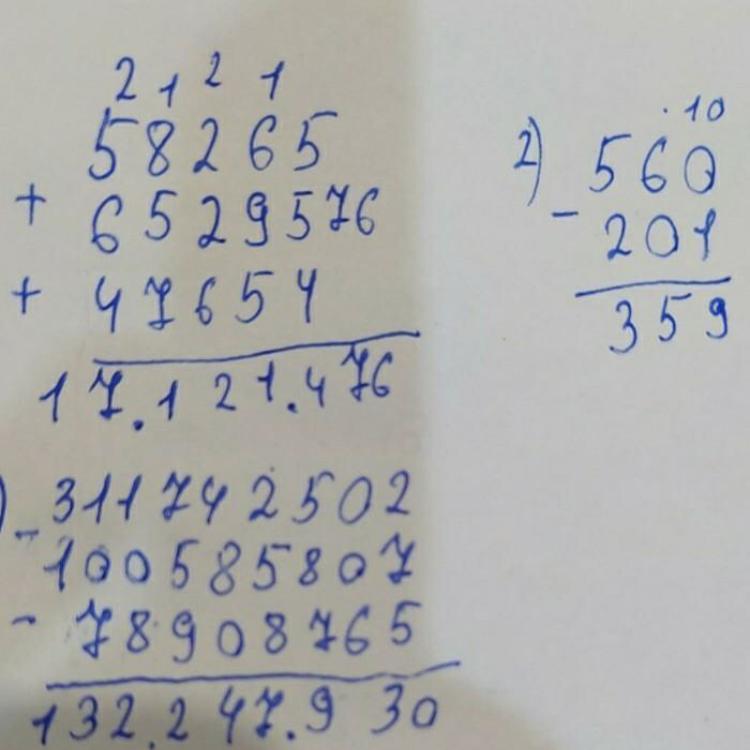 2 1 2 1
58265
+ 6529576
+ 47654
17.121.476
2) .10
560
- 201
359
) - 311742502
100585807
- 78908765
132.247.930